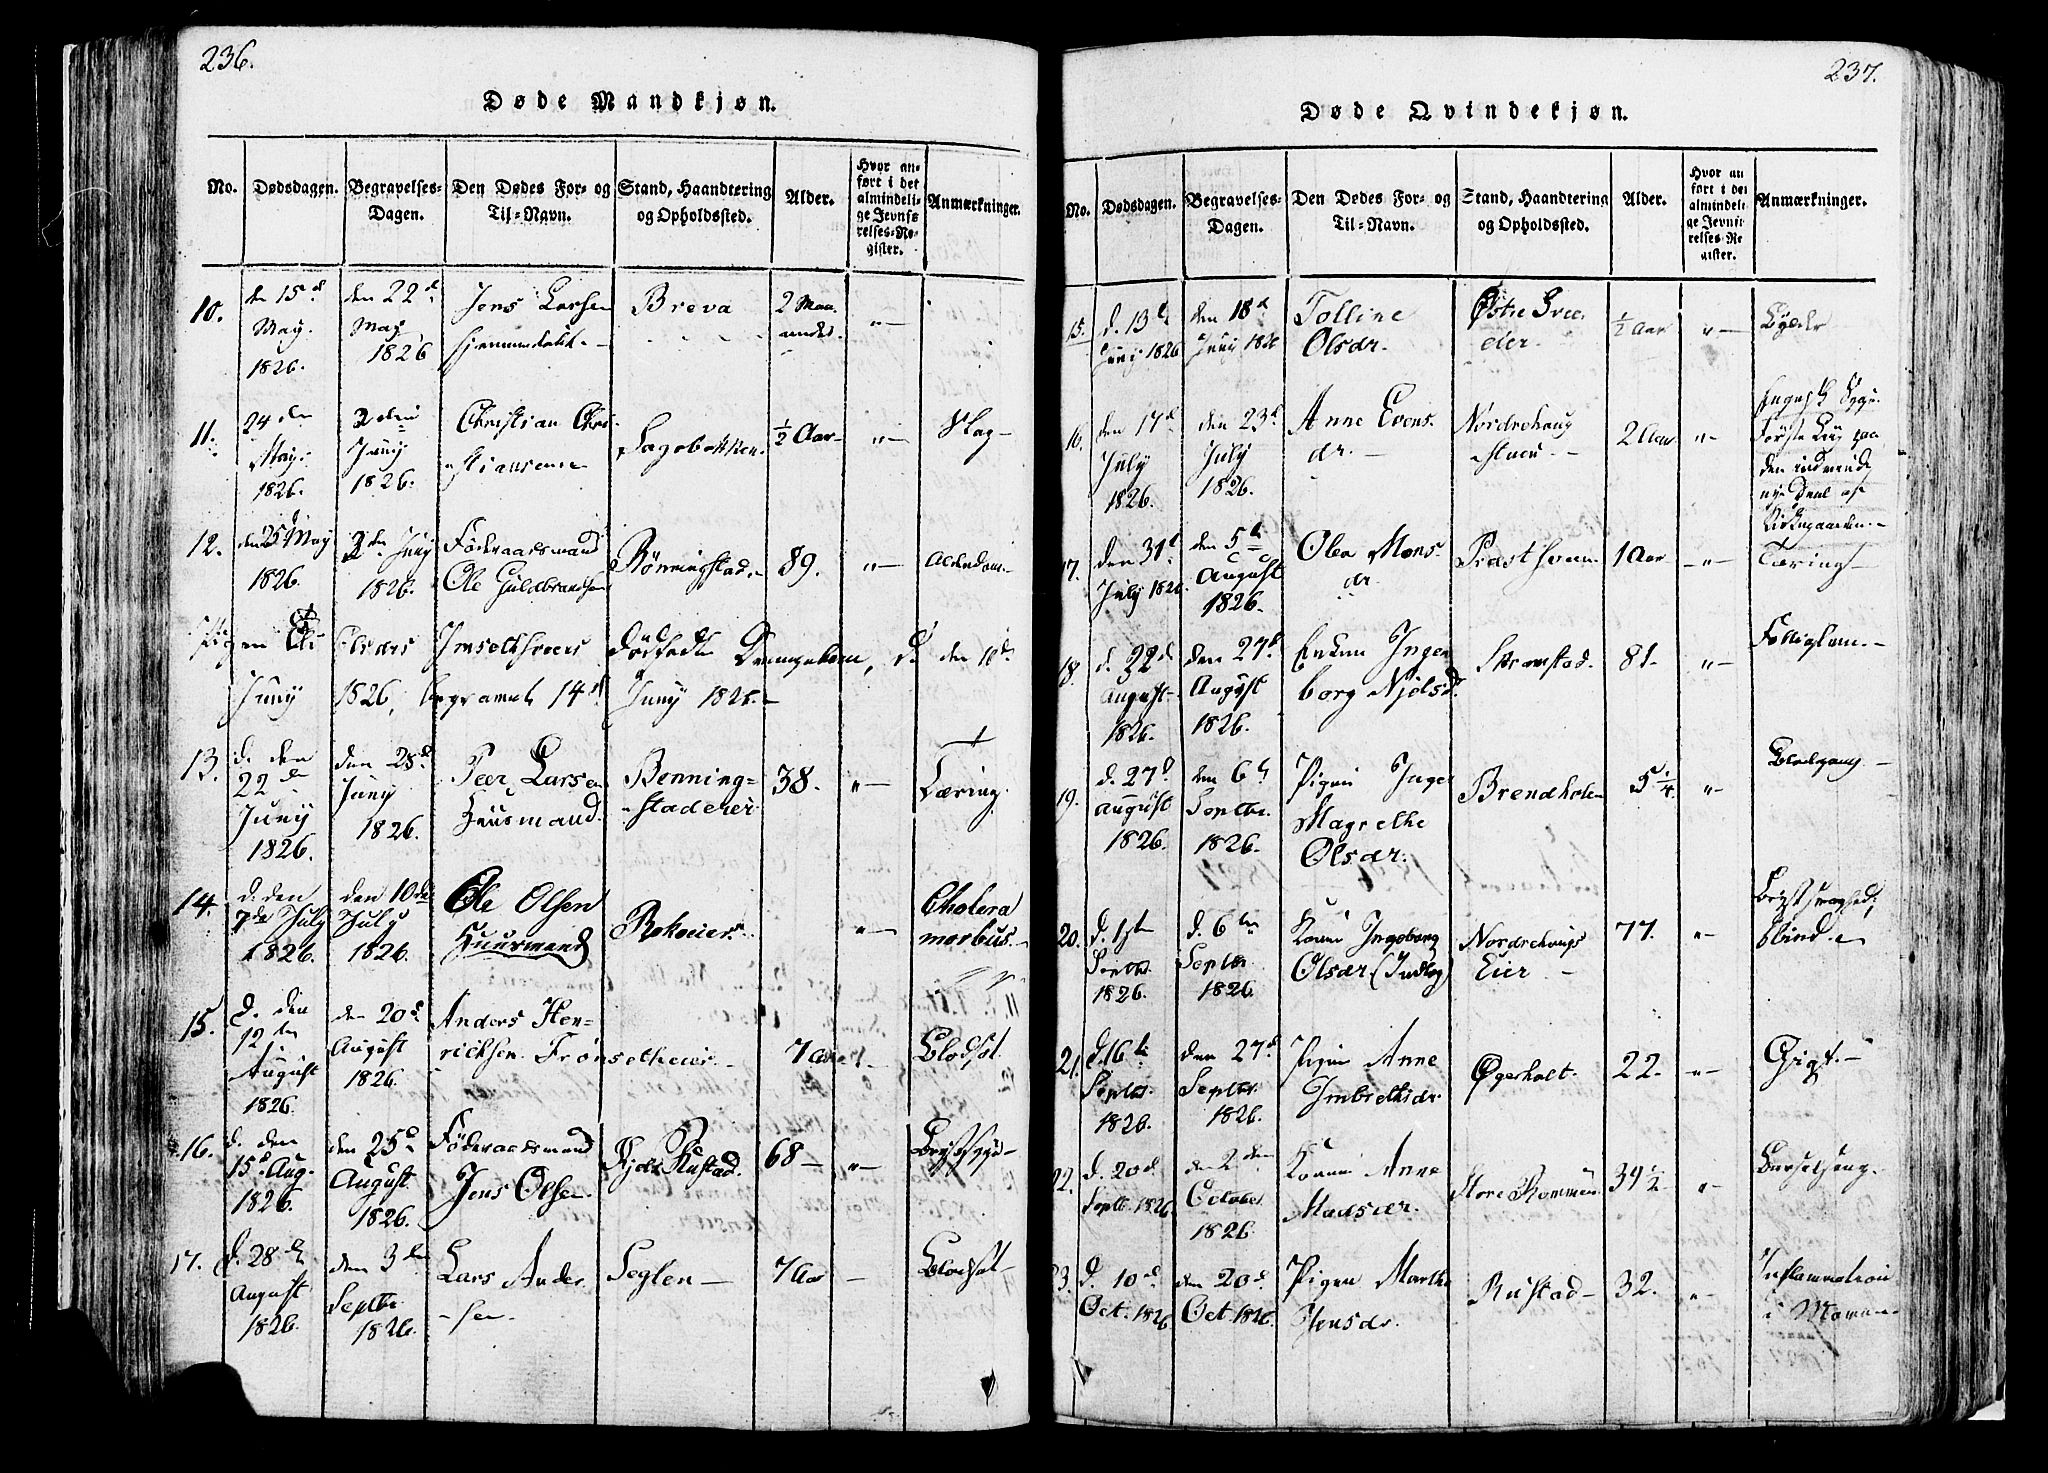 236.
Døde Mandkjøn.
No. Dødsdagen. Begravelses-Dagen. Den Dødes For- og Til-Navn. Stand, Haandtering og Opholdssted. Alder. Hvor anført i det almindelige Jevnførelses-Register. Anmærkninger.
10. den 15d May. 1826. den 22d May 1826 Jens Larsen hjemmedøbt. Breva 2 Maaneder. "
11. 24den May. 1826. 2den Juny 1826. Christian Christiansen Sagebakken ½ Aar "
12. den 25 May 1826. 2den Juny 1826. Föderaadsmand Ole Guldbrandsen Rönningstad. 89. " Alderdom.
Pigen Eli Olsdrs Imselthseiers Dødfødte Drengebarn, d. den 10d
Juny 1826, begravet 14d Juny 1826.
13. d. den 22de Juny 1826. den 25d Juny 1826. Peer Larsen Huusmand. Benningstadeier. 38. " Tæring.
14. d. den 7de July 1826. den 10de July 1826. Ole Olsen Huusmand Rokoeier. " Cholera morbus.
15. d. den 12te August 1826. den 20d August 1826. Anders Henrichsen Frönsetheier. 7 Aar " Blodsot.
16. d. den 15d Aug. 1826. den 25d August 1826. Föderaadsmand Jens Olsen. Rustad. 68 " Brystsyge
17. d. 28d August 1826. den 3die Septbr 1826. Lars Andersen. Seglen 7 Aar Blodsot
237.
Døde Qvindekjøn.
No. Dødsdagen. Begravelses-Dagen. Den Dødes For- og Til-Navn. Stand, Haandtering og Opholdssted. Alder. Hvor anført i det almindelige Jevnførelses-Register. Anmærkninger.
15. d. 13d Juny 1826 den 18d Juny 1826 Tolline Olsdr. Østre 1/2 Aar " Bylder
16. den 17d July 1826. den 23d July 1826. Anne Evensdr. Nordrehaug 2 Aar " Engelsk Syge. Første Lig paa den indviede nye Deel af Kirkegaarden.
17. den 31d July 1826. den 5te August 1826. Olea Monsdr. 1 Aar " Tæring
18. d. 22d August 1826. den 27d August 1826. Enken Ingeborg Njölsd. Skramstad. 81. "
19. d. 27d August 1826. den 6te Septbr. 1826. Pigen Inger Magrethe Olsdr. Brendholen 5 1/4. " Blodgang
20. d. 1ste Septbr. 1826. d. 6te Septbr 1826. Konen Ingeborg Olsdr (Indlag) Nordrehaugs Eier 77. " Brystsvaghed; blind.
21. d. 16te Septbr. 1826. den 27d Septbr 1826. Pigen Anne Embrethsdr. Øgerholt. 22. " Gigt.
22. d. 20d Septbr 1826. den 2den October 1826. Konen Anne Madsdr. Store 39 1/2 " Barselseng.
23. d. 10d Oct. 1826 den 20d Oct. 1826. Pigen Marthe Jensdr. Rustad 32. " Inflammation i Maven